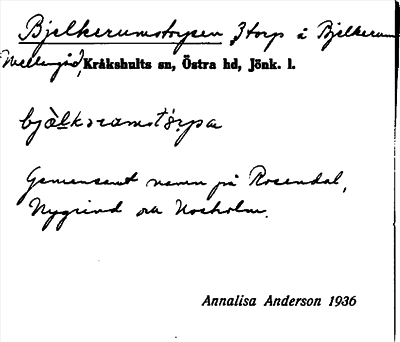 Bjelkerumstorpen 3 torp i Bjelkerum
Mellangård, Kråkshults sn, Östra hd, Jönk. l.
Gemensamt namn på Rosendal,
Nygrind och Noxholm.
Annalisa Anderson 1936